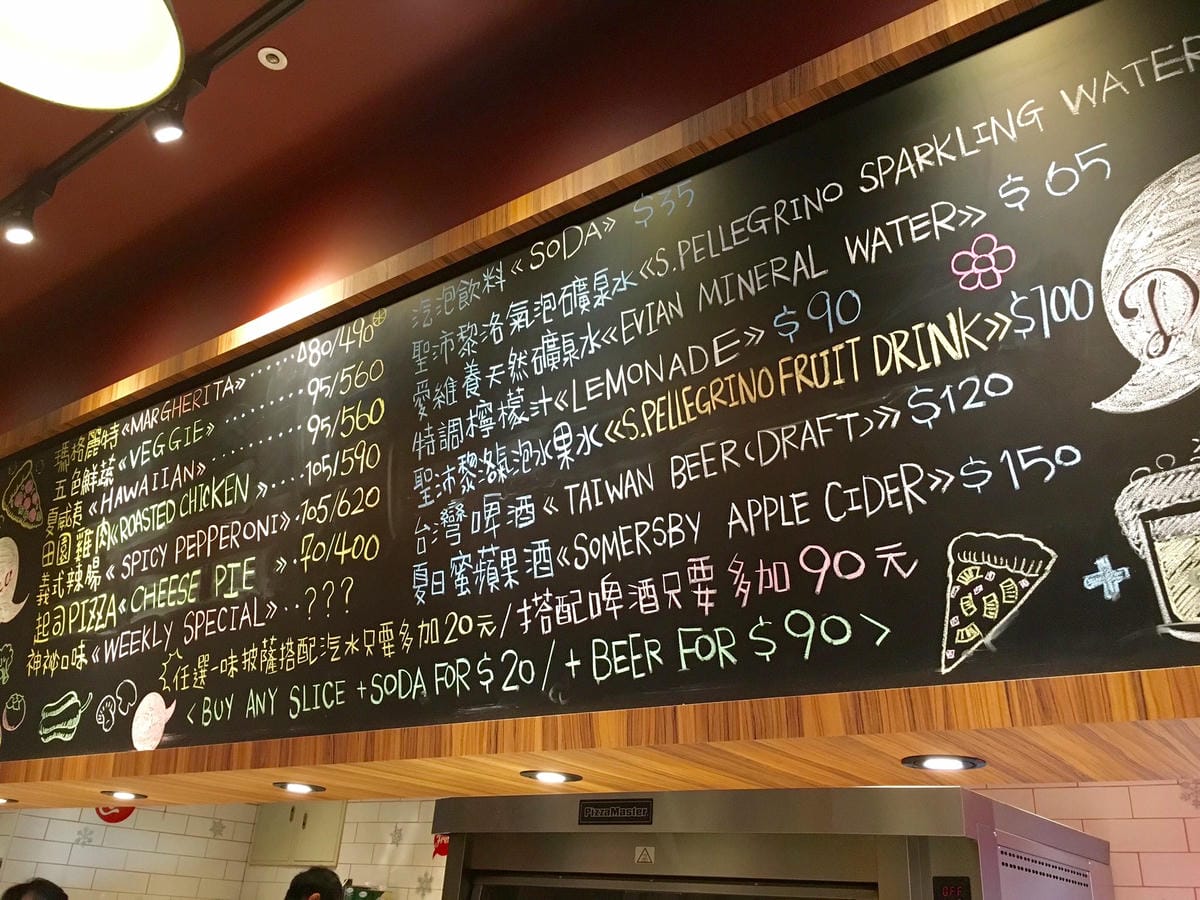 瑪格麗特《MARGHERITA》......80/490
五色鮮蔬《VEGGIE》........95/560
夏威夷《HAWAIIAN》........95/560
田園雞肉《ROASTED CHICKEN》....105/590
義式辣腸《SPICY PEPPERONI》.105/620
起司PIZZA《CHEESE PIE》.70/400
神祕口味《WEEKLY SPECIAL》..???
汽泡飲料《SODA》$35
聖沛黎洛氣泡礦泉水《S.PELLEGRINO SPARKLING WATER
愛維養天然礦泉水《EVIAN MINERAL WATER》$65
特調檸檬汁《LEMONADE》$90
聖沛黎洛氣泡水果水《S.PELLEGRINO FRUIT DRINK》$100
台灣啤酒《TAIWAN BEER<DRAFT>》$120
夏日蜜蘋果酒《SOMERSBY APPLE CIDER》$150
任選一味披薩搭配汽水只要多加20元/搭配啤酒只要多加90元
<BUY ANY SLICE +SODA FOR $20/+ BEER FOR $90>
+
PizzaMaster
OFF